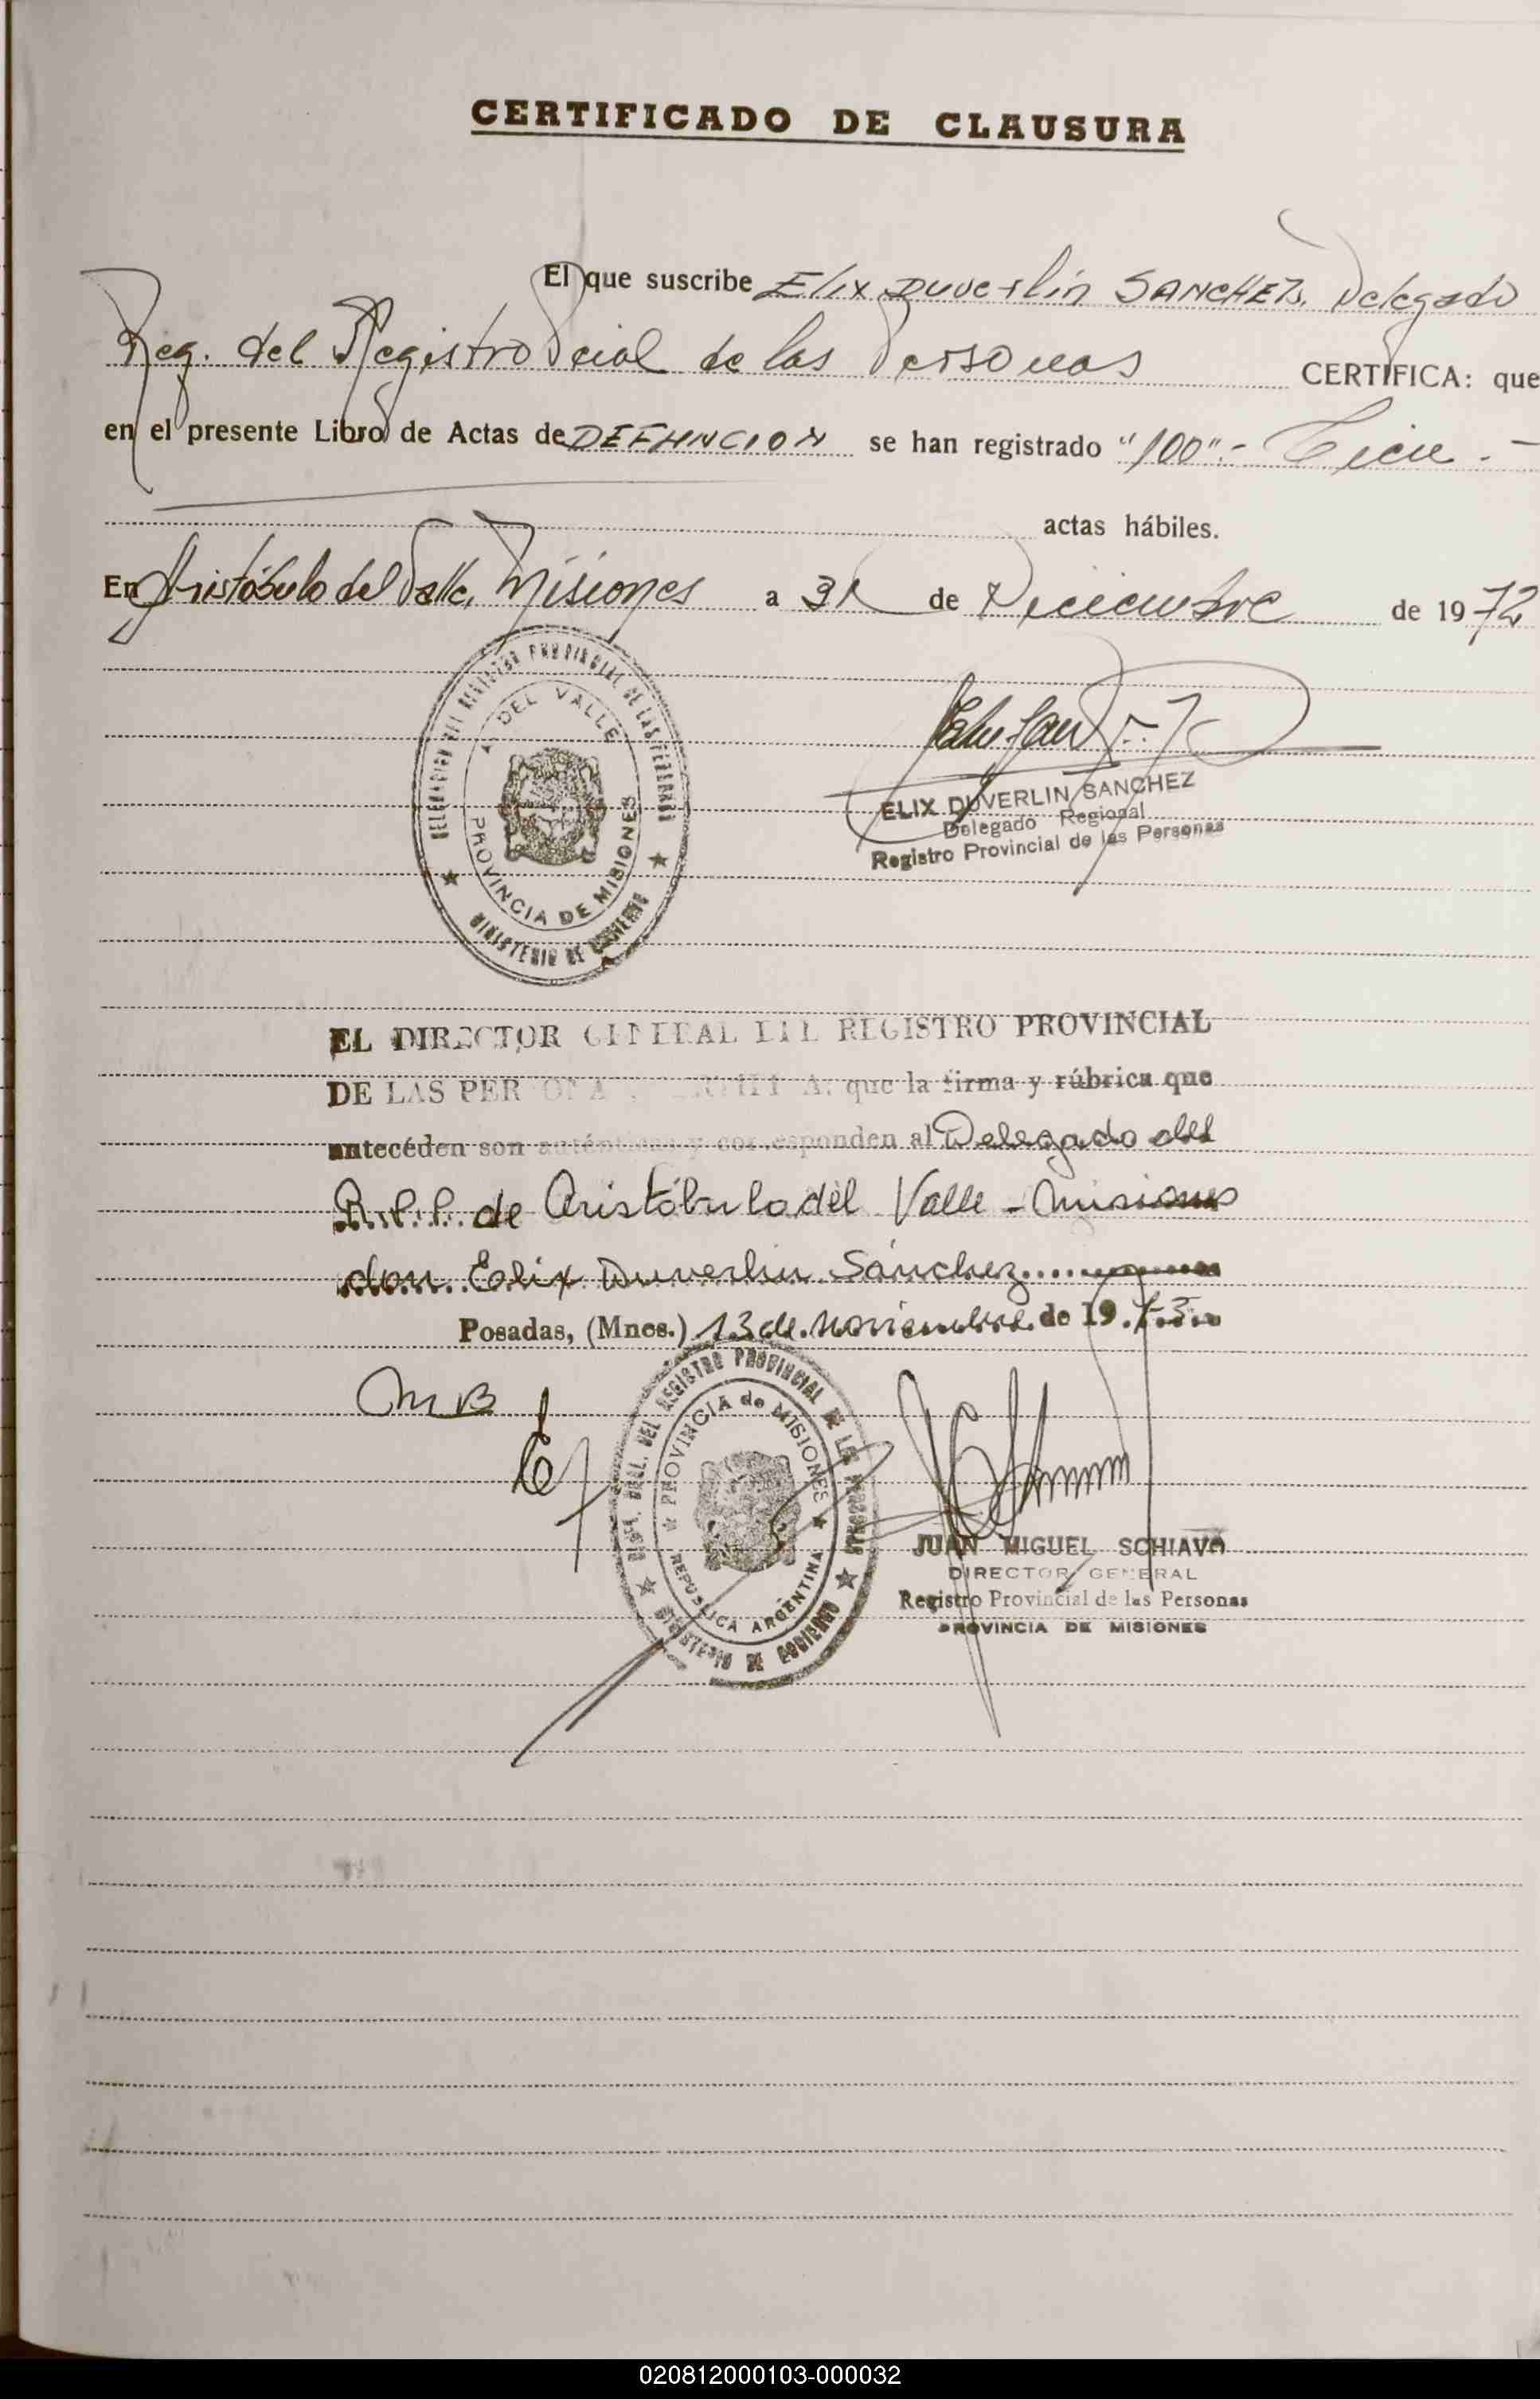 CERTIFICADO DE CLAUSURA
El que suscribe Elix Duverlin SANCHEZ, Delegado
Reg. del Registro Pcial de las Personas CERTIFICA: que
en el presente Libro de Actas de DEFUNCION se han registrado "100".- Cien.-
actas hábiles.
En Aristóbulo del Valle, Misiones a 31 de Diciembre de 1972
DELEGACION DEL REGISTRO PROVINCIAL DE LAS PERSONAS
A. DEL VALLE
PROVINCIA DE MISIONES
MINISTERIO DE GOBIERNO
ELIX DUVERLIN SANCHEZ
Delegado Regional
Registro Provincial de las Personas
EL DIRECTOR GENERAL DEL REGISTRO PROVINCIAL
DE LAS PERSONAS CERTIFICA: que la firma y rúbrica que
anteceden son auténticas y corresponden al Delegado del
R.P.P. de Aristóbulo del Valle - Misiones
don Eelix Duverlin Sánchez
Posadas, (Mnes.) 13 de noviembre de 19 73
MB
DIREC. GRAL. DEL REGISTRO PROVINCIAL DE LAS PERSONAS
PROVINCIA de MISIONES
REPUBLICA ARGENTINA
MINISTERIO DE GOBIERNO
JUAN MIGUEL SCHIAVO
DIRECTOR GENERAL
Registro Provincial de las Personas
PROVINCIA DE MISIONES
020812000103-000032